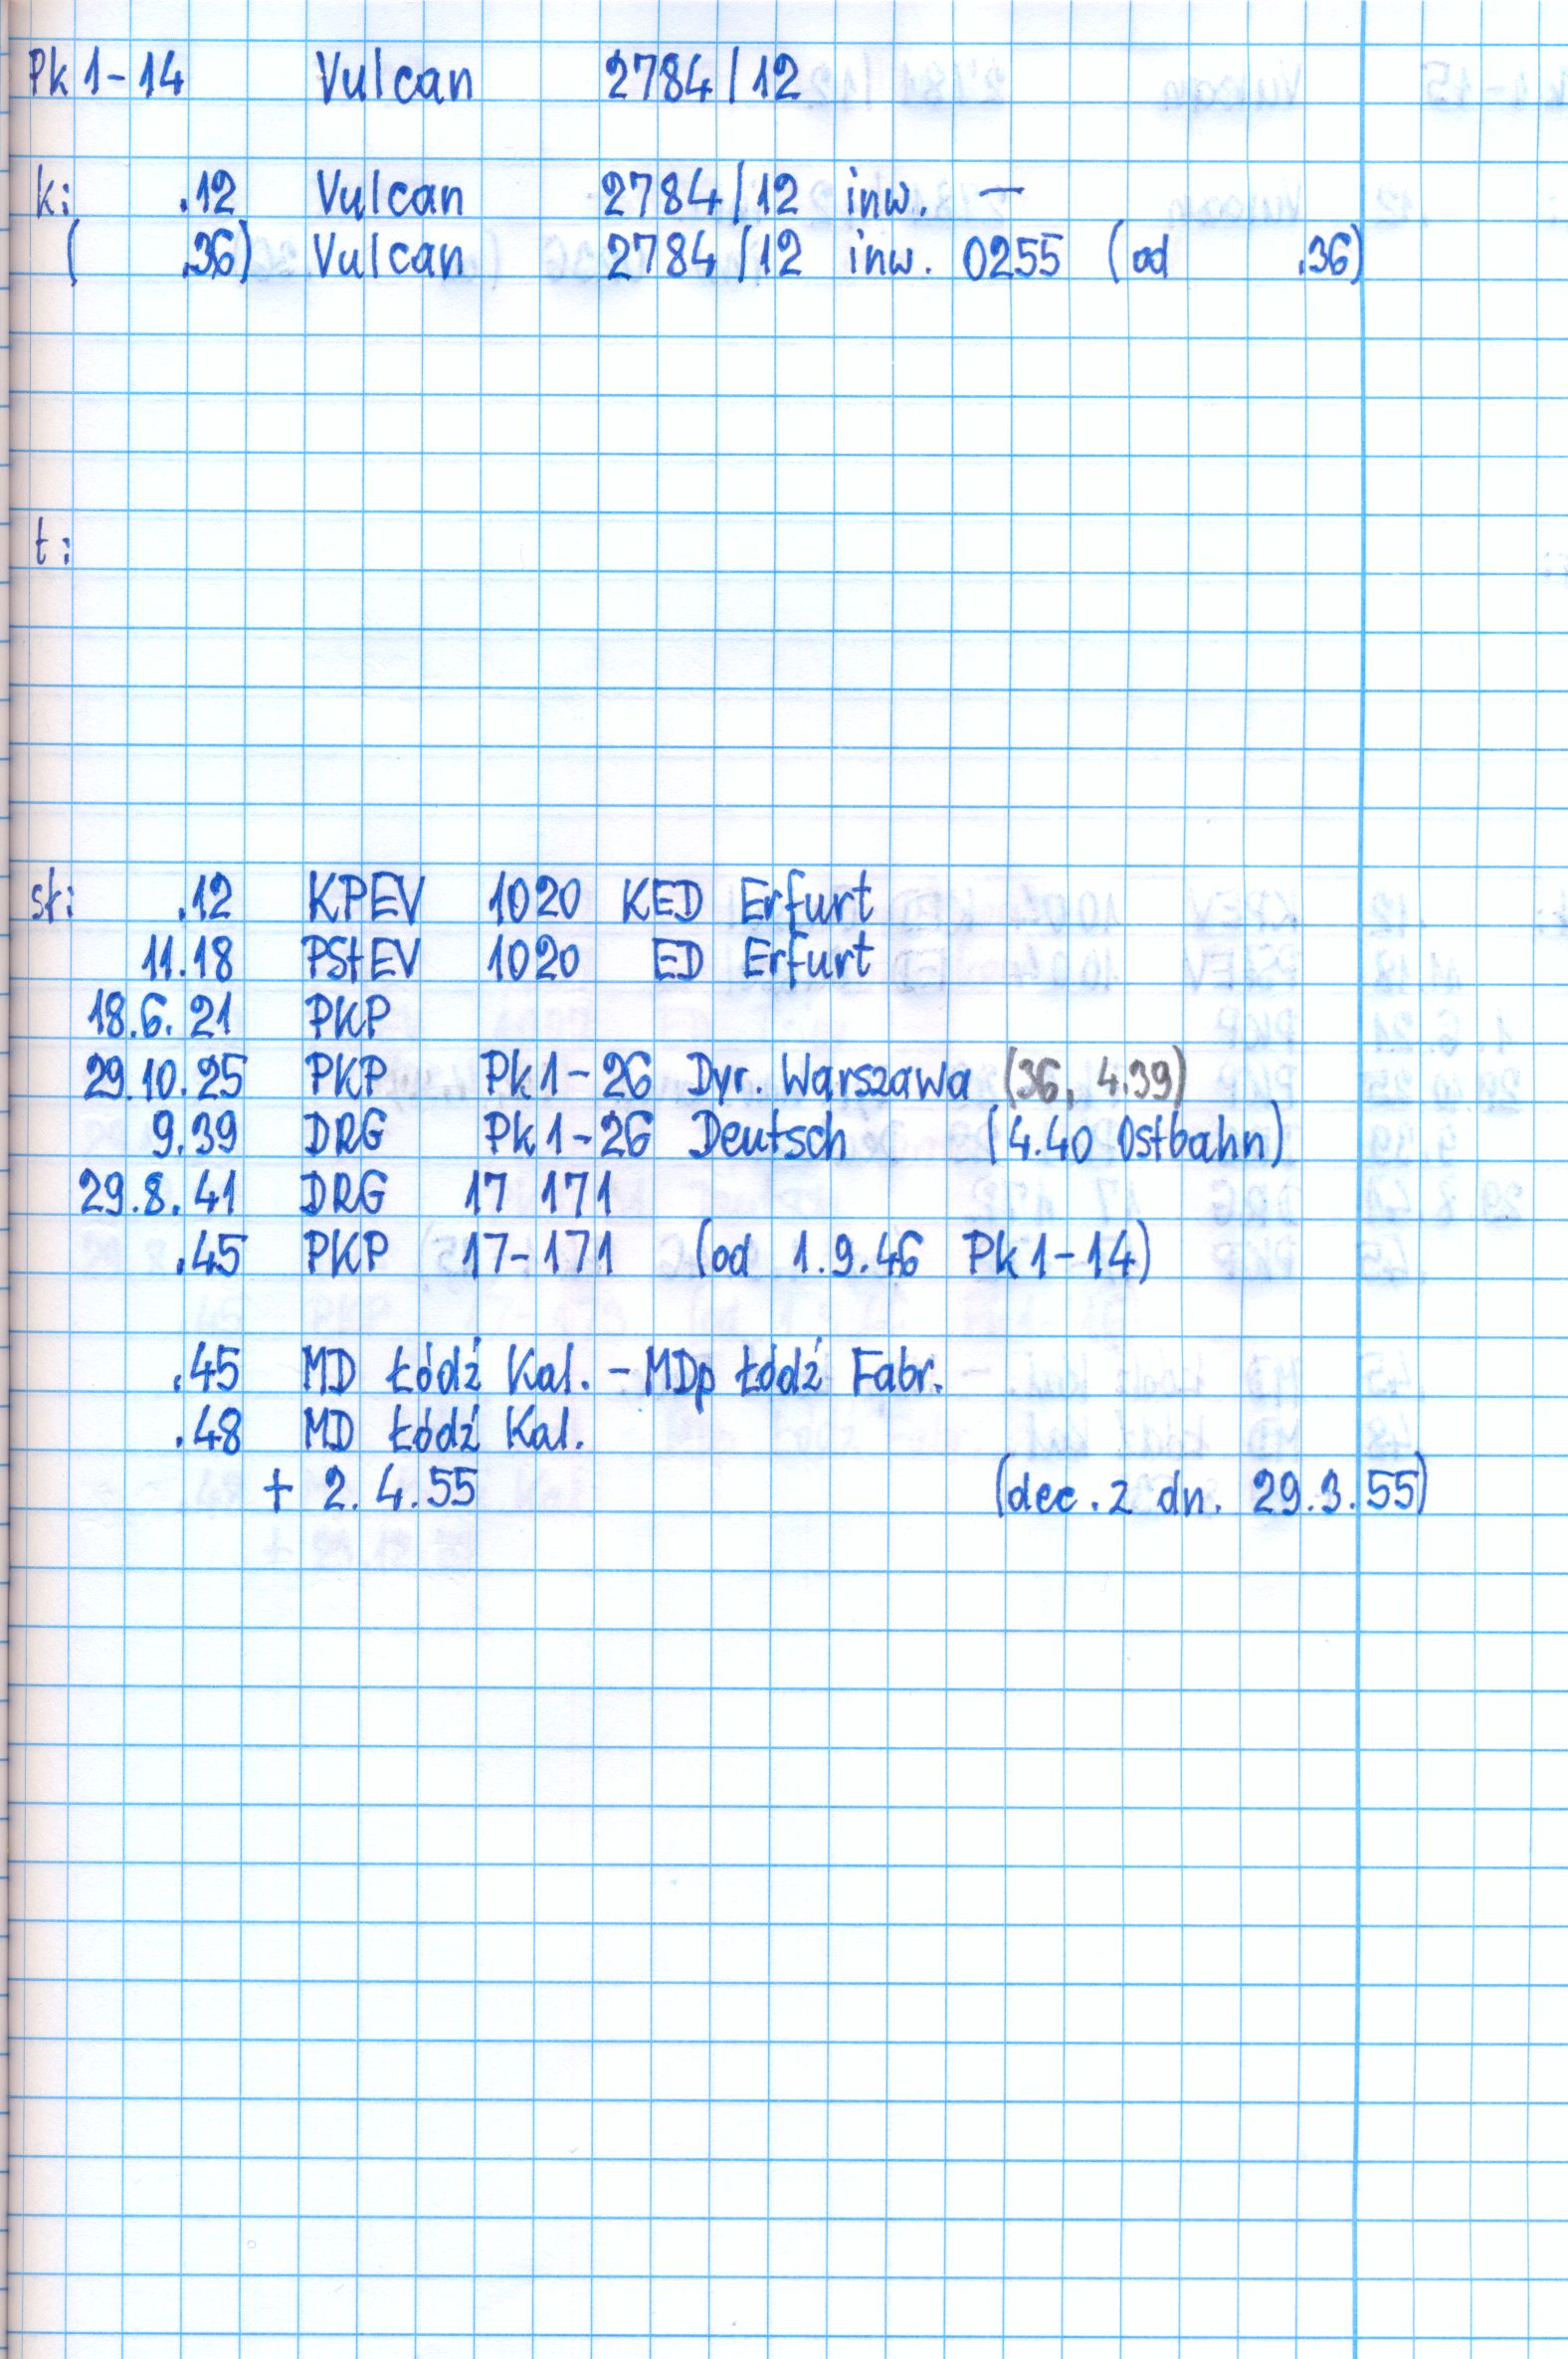 Pk1-14 Vulcan 2784/12
k: .12 Vulcan 2784/12 inw. —
( .36) Vulcan 2784/12 inw. 0255 (od .36)
t:
st: .12 KPEV 1020 KED Erfurt
11.18 PStEV 1020 ED Erfurt
18.6.21 PKP
29.10.25 PKP Pk1-26 Dyr. Warszawa (36, 4.39)
9.39 DRG Pk1-26 Deutsch (4.40 Ostbahn)
29.8.41 DRG 17 171
.45 PKP 17-171 (od 1.9.46 Pk1-14)
.45 MD Łódź Kal. - MDp Łódź Fabr.
.48 MD Łódź Kal.
+ 2.4.55 (dec. z dn. 29.3.55)